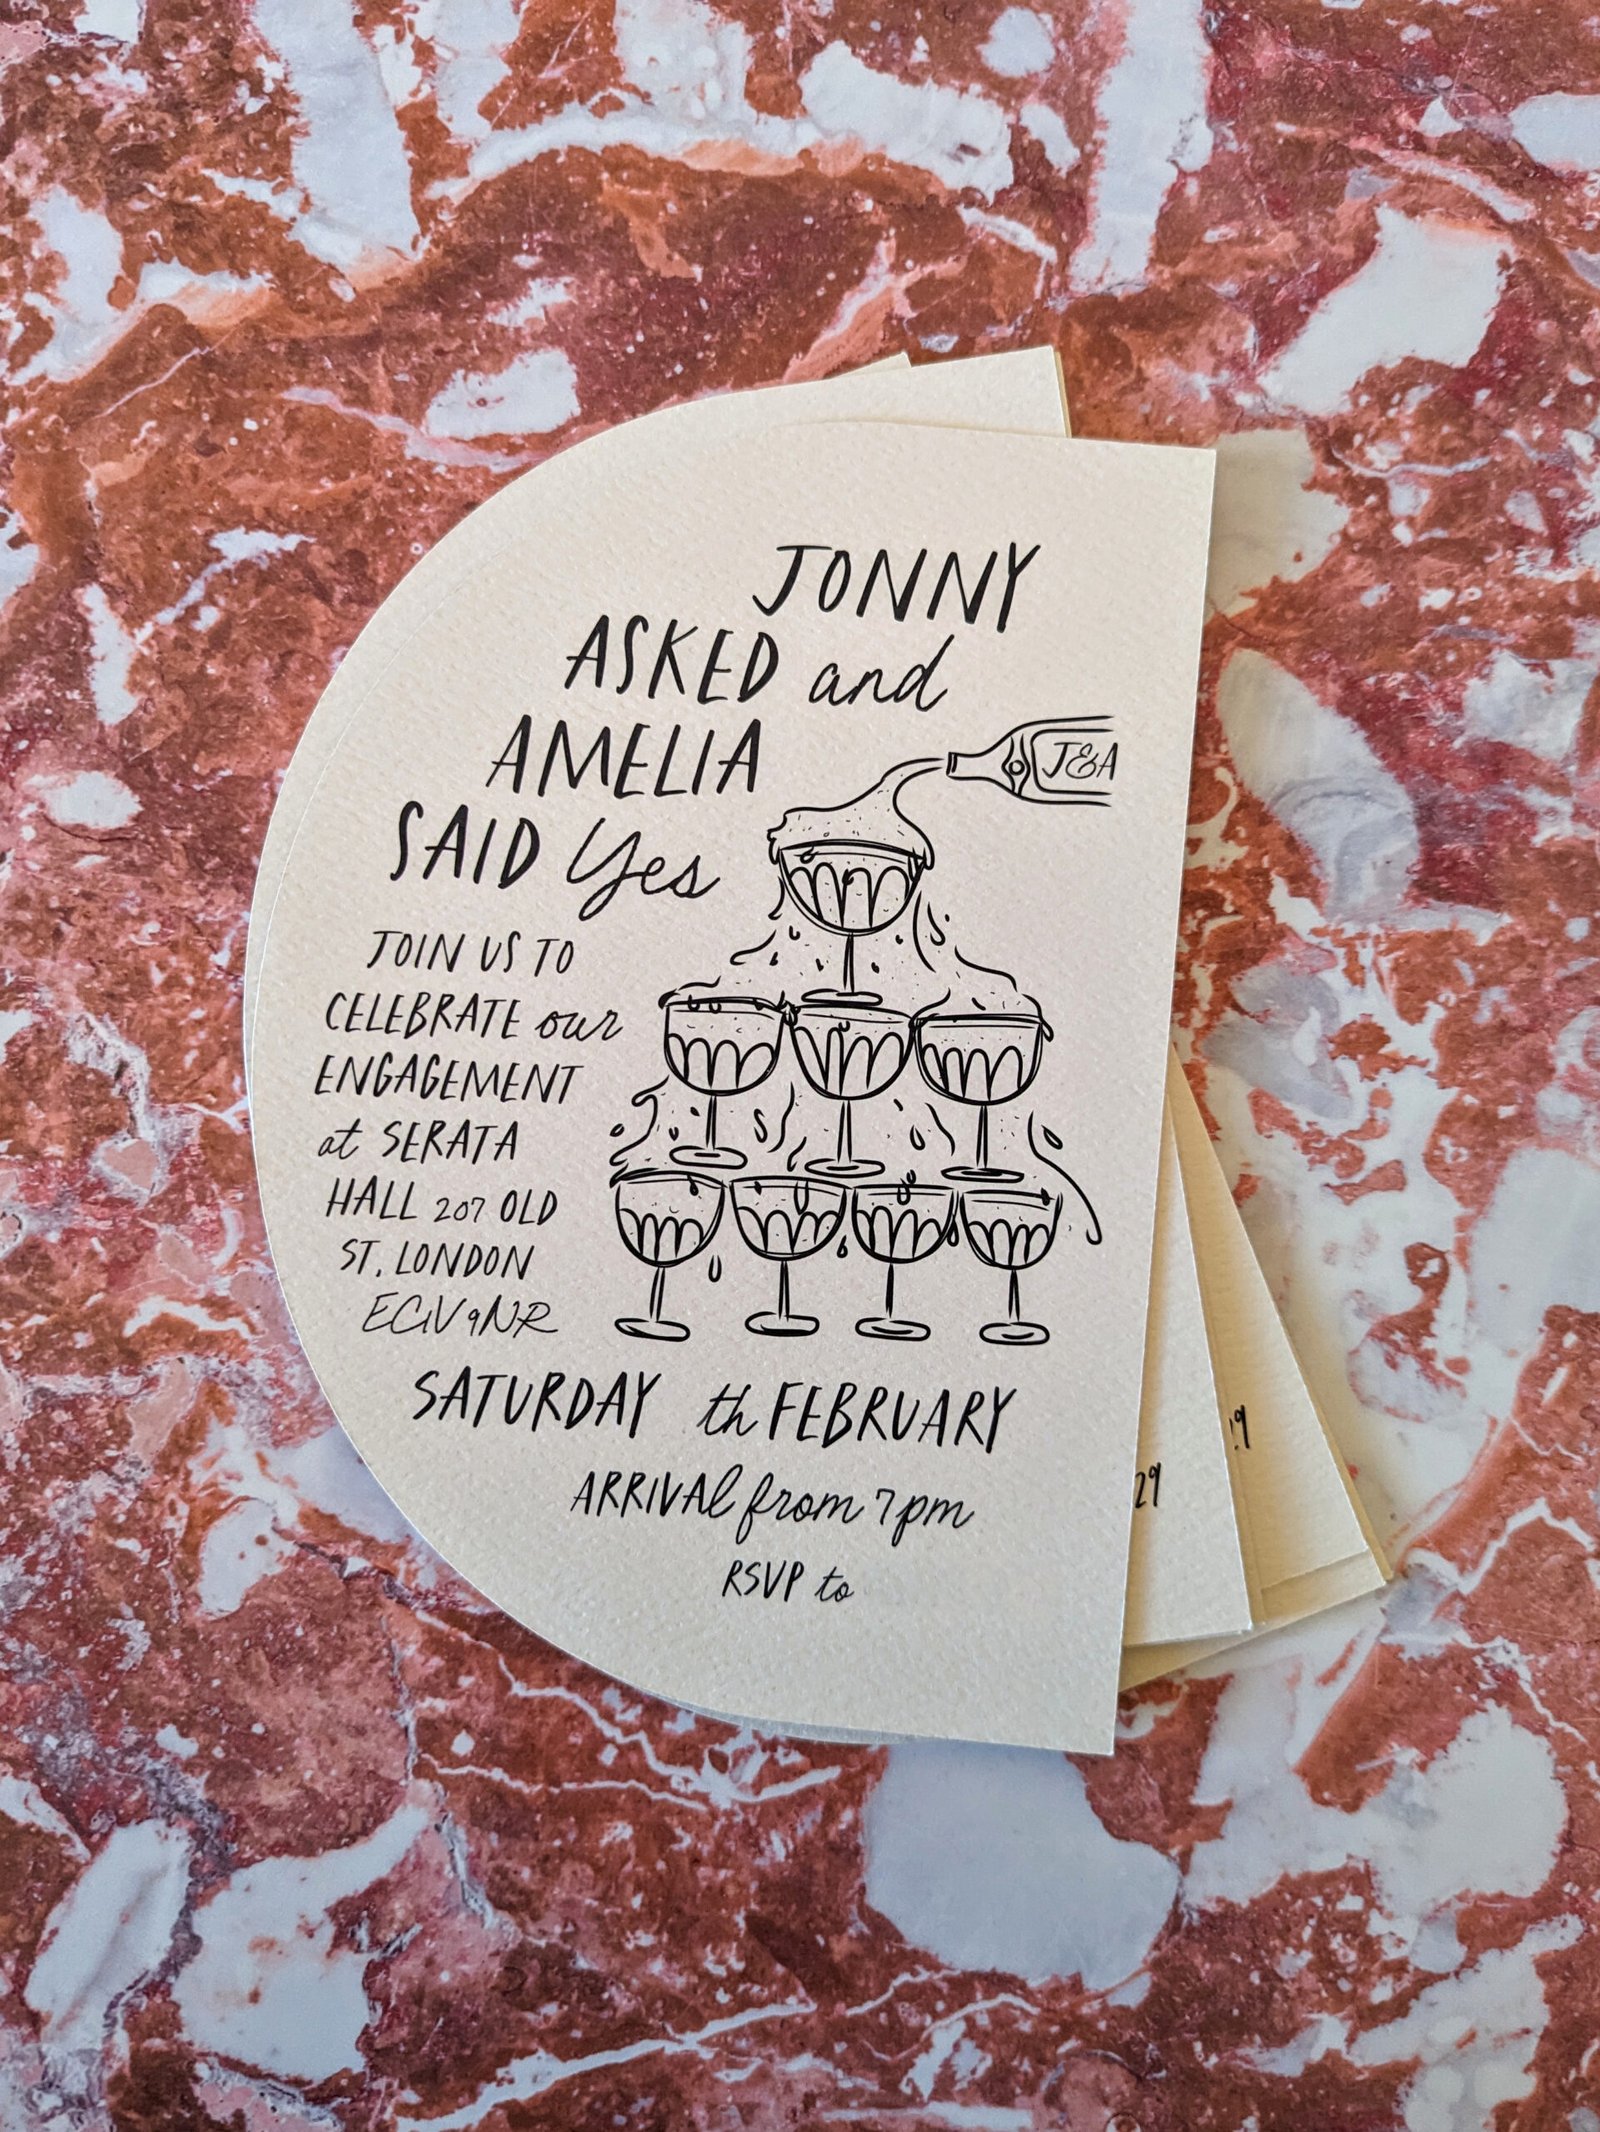 JONNY
ASKED and
AMELIA
SAID Yes
J&A
JOIN US TO
CELEBRATE our
ENGAGEMENT
at SERATA
HALL 207 OLD
ST. LONDON
EC1V 9NR
SATURDAY th FEBRUARY
ARRIVAL from 7pm
RSVP to
29